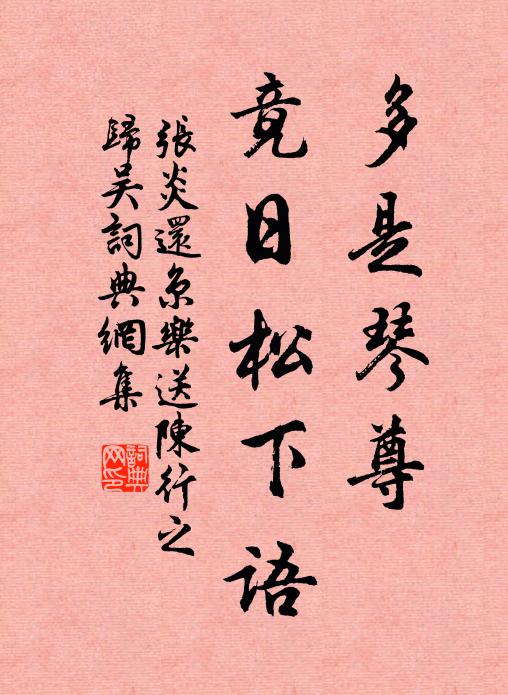 多是琴尊
竟日松下語
張炎還京樂送陳行之
歸吴詞典網集
詞典網印